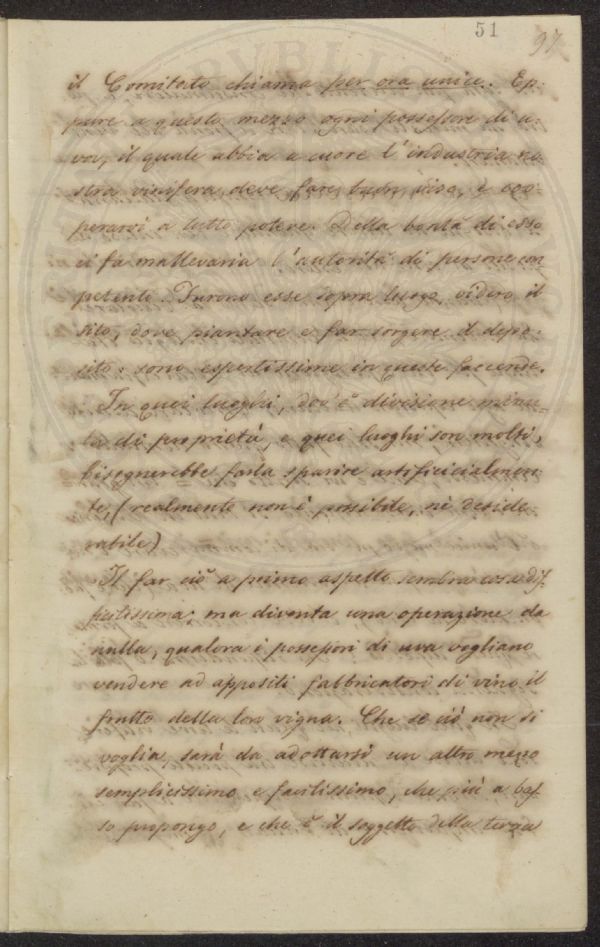 51
97
il Comitato chiama per ora unico. Ep-
pure a questo mezzo ogni possessore di u-
va, il quale abbia a cuore l'industria no
stra vinifera, deve fare buon viso, e coo-
perarvi a tutto potere. Della bontà di esso
ci fa mallevaria l'autorità di persone com
petenti. Furono esse sopra luogo, videro il
sito, dove piantare e far sorgere il depo-
sito: sono espertissime in queste faccende.
In quei luoghi, dov'è divisione minu-
ta di proprietà, e quei luoghi son molti,
bisognerebbe farla sparire artificialmen
te, (realmente non è possibile, nè deside-
rabile)
Il far ciò a primo aspetto sembra cosa dif
ficilissima; ma diventa una operazione da
nulla, qualora i possessori di uva vogliano
vendere ad appositi fabbricatori di vino il
frutto della lor vigna. Che se ciò non si
voglia, sarà da adottarsi un altro mezzo
semplicissimo e facilissimo, che più a bas
so propongo, e che è il soggetto della terza